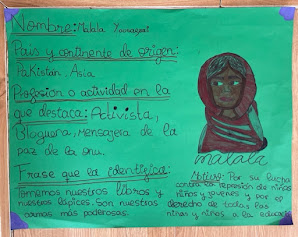 Nombre: Malala Yousafzai
País y continente de origen:
Pakistán, Asia
Profesión o actividad en la
que destaca: Activista,
Bloguera, Mensajera de la
paz de la onu.
Frase que la identifica:
Tomemos nuestros libros y
nuestros lápices. Son nuestras
armas más poderosas.
malala
Motivo: Por su lucha
contra la represión de niños
niñas y jóvenes y por el
derecho de todas las
niñas y niños a la educación